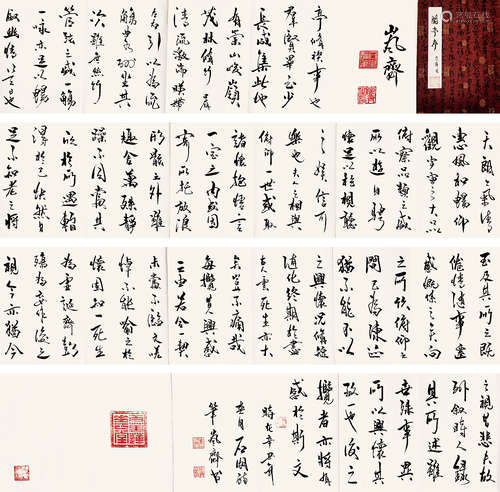 嵐齋
亭脩禊事也
群賢畢至少
長咸集此地
有崇山峻嶺
茂林脩竹又有
清流激湍映帶
左右引以為流
觴曲水列坐其
次雖無絲竹
管弦之盛一觴
一詠亦足以暢
敘幽情是日也
天朗氣清
惠風和暢仰
觀宇宙之大以
俯察品類之盛
所以遊目騁
懷足以極視聽
之娛信可
樂也夫人之相與
俯仰一世或取
諸懷抱悟言
一室之內或因
寄所託放浪
形骸之外雖
趣舍萬殊靜
躁不同當其
欣於所遇暫
得於己快然自
足不知老之將
至及其所
倦情隨事遷
感慨係之矣向
之所欣俯仰之
間已為陳迹
猶不能不以
之興懷況脩短
隨化終期於盡
死生亦大
矣豈不痛哉
每攬昔人興感
之由若合一契
未嘗不臨文嗟
悼不能喻之於
懷固知一死生
為虛誕齊彭
殤為妄作後之
視今亦猶今
之視昔悲夫故
列敘時人錄
其所述雖
世殊事異
所以興懷其
致一也後之
攬者亦將有
感於斯文